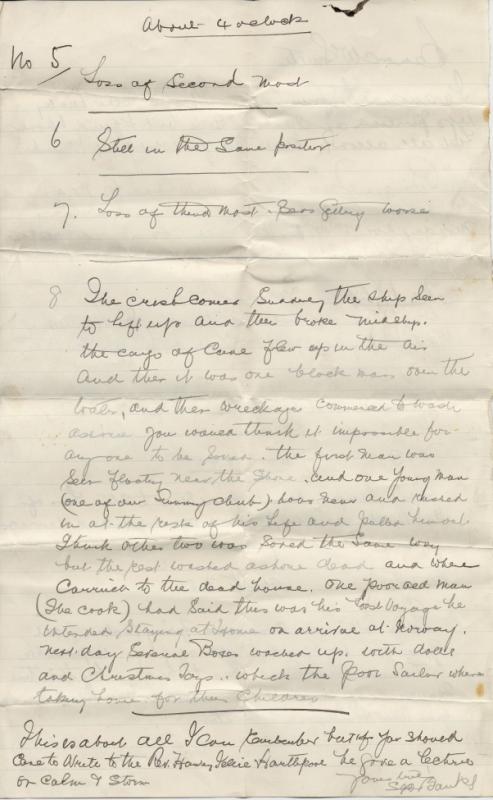 About 4 oclock
No 5/ Loss of Second Mast
6 Still in the Same position
7. Loss of third Mast. Seas getting worse
8 The crash comes Suddenly the ship Seen
to lift up and then broke midships.
the cargo of Cane flew up in the air
and then it was one black mass over the
water, and then wreckage commenced to wash
ashore you would think it impossible for
any one to be Saved. the first man was
Seen floating near the Shore. and one young man
(one of our Swimming club) was near and rushed
in at the risk of his life and pulled him out
I think other two was Saved the Same way
but the rest washed ashore dead and where
Carried to the dead house. One poor old man
(The cook) had Said this was his last Voyage he
intended Staying at Home on arrival at Norway.
next day Several Boxes washed up. with dolls
and Christmas Toys. which the poor Sailors where
taking home for their Children
This is about all I can Remember but if you should
Care to Write to the Rev. Harvey he give a lecture
on Calm & Storm
Yours